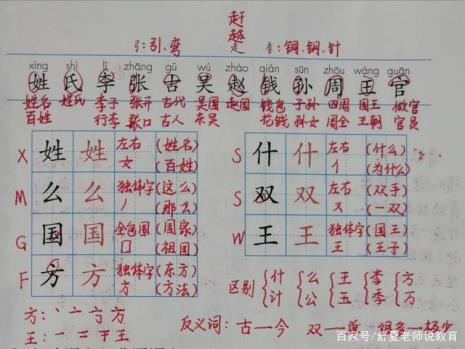 赶
越
弓:引.弯 走 钅:铜.钢.针
xìng shì lǐ zhāng gǔ wú zhào qián sūn zhōu wáng guān
姓 氏 李 张 古 吴 赵 钱 孙 周 王 官
姓名 姓氏 李子 张开 古代 吴国 赵国 钱包 子孙 四周 国王 做官
百姓 行李 张口 古人 东吴 花钱 孙女 周全 王朝 官员
X 姓 姓 左右 (姓名) S 什 什 左右 (什么)
女 (百姓) 亻 (为什么)
M 么 么 独体字 (这么) S 双 双 左右 (双手)
丿 (那么) 又 (一双)
G 国 国 全包围 (国家) W 王 王 独体字 (国王)
囗 (祖国) 王 (王子)
F 方 方 独体字 (东方) 区别 什 么 王 李 方
方 (方法) 计 公 玉 季 万
方:丶 亠 方
王:一 二 干 王 反义词:古一今 双一单 很多一很少
百家号/舒夏老师说教育